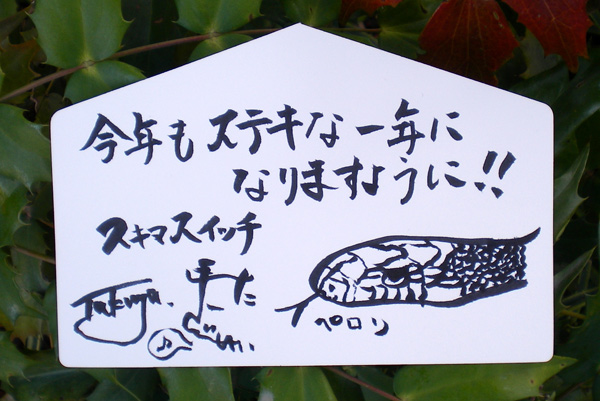 今年もステキな一年に
なりますように!!
スキマスイッチ
Takuya.
ペロリ